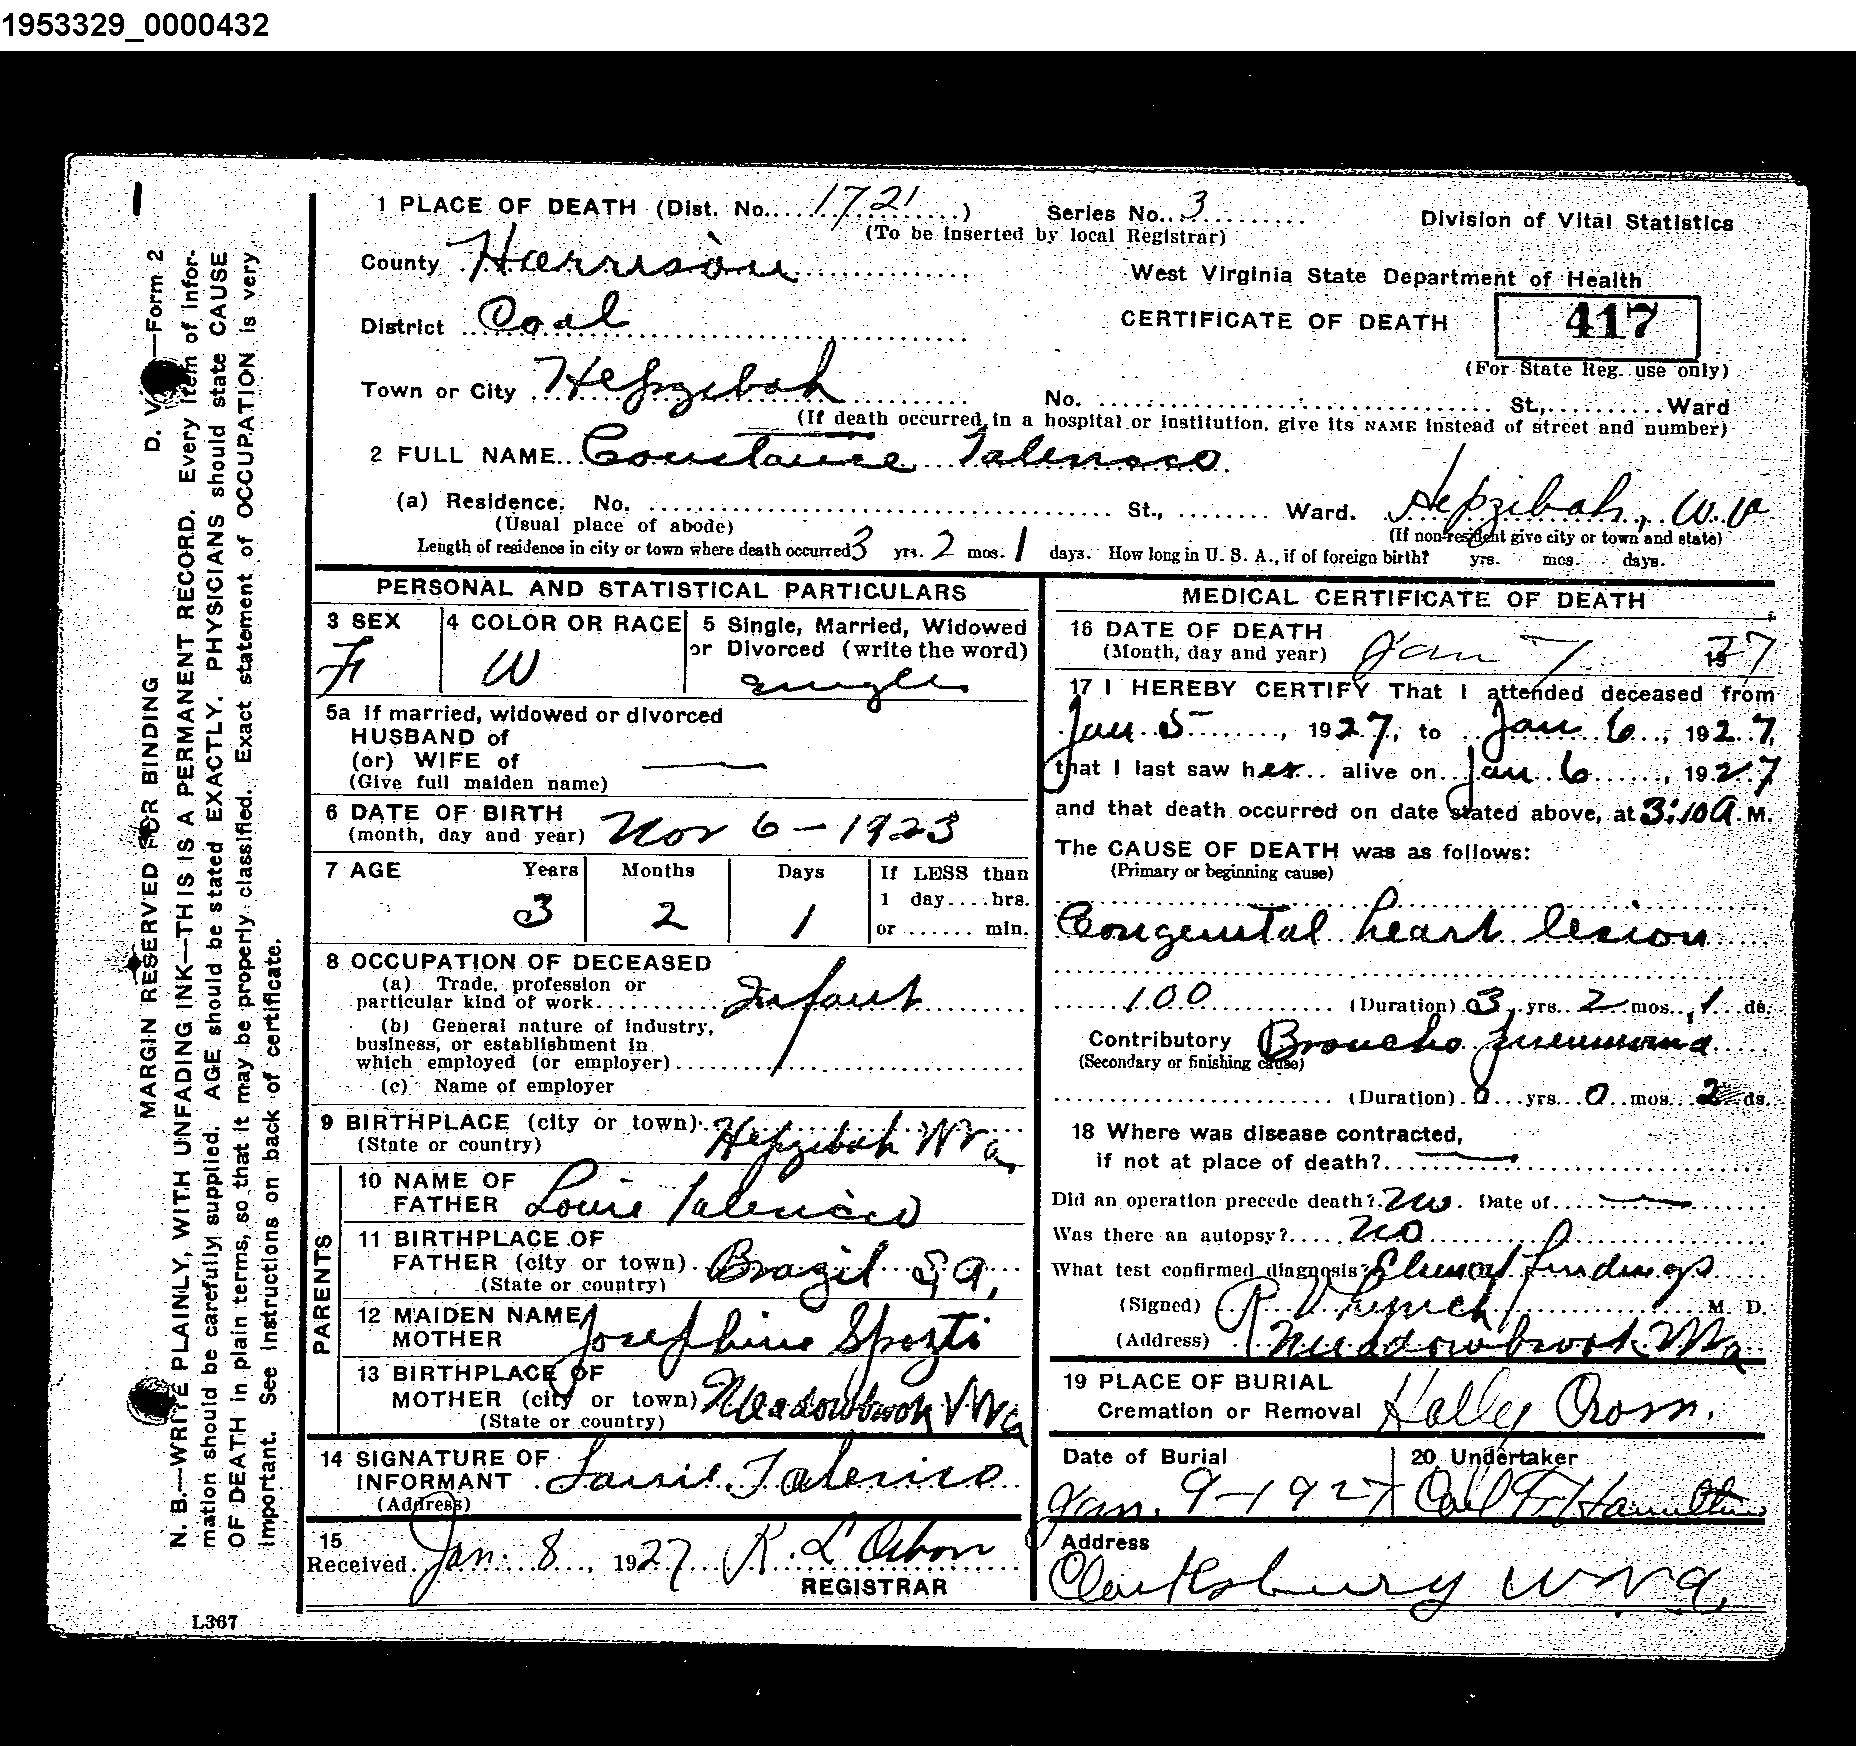 1953329_0000432
1 PLACE OF DEATH (Dist. No. 1721 ) Series No. 3 Division of Vital Statistics
(To be inserted by local Registrar)
County Harrison West Virginia State Department of Health
District Coal CERTIFICATE OF DEATH 417
(For State Reg. use only)
Town or City Hepzibah No. St., Ward
(If death occurred in a hospital or institution, give its NAME instead of street and number)
2 FULL NAME Constance Talerico
(a) Residence. No. St., Ward. Hepzibah, W. Va
(Usual place of abode) (If non-resident give city or town and state)
Length of residence in city or town where death occurred 3 yrs. 2 mos. 1 days. How long in U. S. A., if of foreign birth? yrs. mos. days.
PERSONAL AND STATISTICAL PARTICULARS
3 SEX
F
4 COLOR OR RACE
W
5 Single, Married, Widowed
or Divorced (write the word)
single
5a If married, widowed or divorced
HUSBAND of
(or) WIFE of —
(Give full maiden name)
6 DATE OF BIRTH
(month, day and year) Nov 6 - 1923
7 AGE Years Months Days If LESS than
1 day....hrs.
3 2 1 or ...... min.
8 OCCUPATION OF DECEASED
(a) Trade, profession or
particular kind of work Infant
(b) General nature of industry,
business, or establishment in
which employed (or employer)
(c) Name of employer
9 BIRTHPLACE (city or town) Hepzibah W Va,
(State or country)
PARENTS
10 NAME OF
FATHER Louie Talerico
11 BIRTHPLACE OF
FATHER (city or town) Brazil S A,
(State or country)
12 MAIDEN NAME
MOTHER Josephine
13 BIRTHPLACE OF
MOTHER (city or town) Meadowbrook W Va
(State or country)
14 SIGNATURE OF
INFORMANT Talerico
(Address)
15
Received Jan. 8, 1927 R. L Osborn
REGISTRAR
MEDICAL CERTIFICATE OF DEATH
16 DATE OF DEATH
(Month, day and year) Jan 7 1927
17 I HEREBY CERTIFY That I attended deceased from
Jan 5, 1927, to Jan 6, 1927,
that I last saw her alive on Jan 6, 1927
and that death occurred on date stated above, at 3:10 A. M.
The CAUSE OF DEATH was as follows:
(Primary or beginning cause)
Congenital heart lesion
100 (Duration) 3 yrs. 2 mos. 1 ds.
Contributory Broncho pneumonia
(Secondary or finishing cause)
(Duration) 0 yrs. 0 mos. 2 ds.
18 Where was disease contracted,
if not at place of death? —
Did an operation precede death? No. Date of —
Was there an autopsy? No
What test confirmed diagnosis? Clinical findings
(Signed) R V Lynch M. D.
(Address) Meadowbrook W Va
19 PLACE OF BURIAL
Cremation or Removal Holley Cross.
Date of Burial
Jan. 9 - 1927
20 Undertaker
Carl Hamilton
Address
Clarksburg W Va,
D. V. —Form 2
MARGIN RESERVED FOR BINDING
N. B.—WRITE PLAINLY, WITH UNFADING INK—THIS IS A PERMANENT RECORD. Every item of infor-
mation should be carefully supplied. AGE should be stated EXACTLY. PHYSICIANS should state CAUSE
OF DEATH in plain terms, so that it may be properly classified. Exact statement of OCCUPATION is very
important. See instructions on back of certificate.
L367